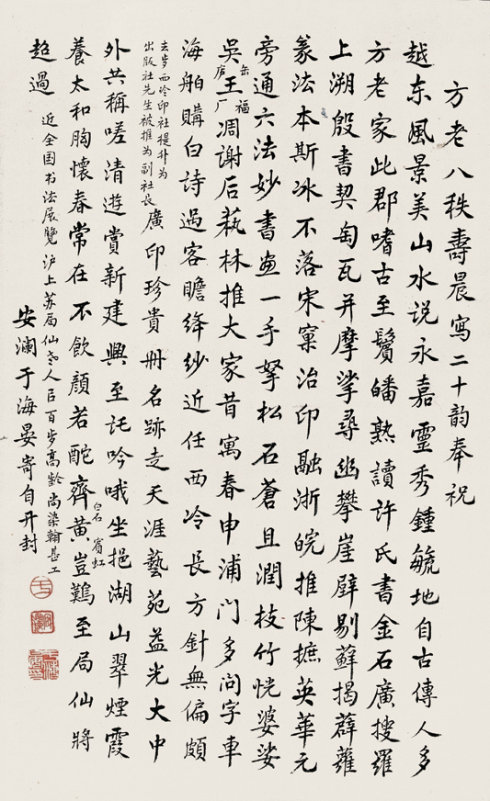 方老八秩壽晨寫二十韵奉祝
越东風景美山水说永嘉靈秀鍾毓地自古傳人多
方老家此郡嗜古至鬢皤熟讀许氏書金石廣搜羅
上溯殷書契匋瓦并摩挲尋幽攀崖壁剔蘚揭薜蘿
篆法本斯冰不落宋窠治印融浙皖推陳摭英華元
旁通六法妙書画一手拏松石蒼且潤枝竹恍婆娑
吴缶庐王福厂凋謝后萟林推大家昔寓春申浦门多问字車
海舶購白詩過客瞻绛纱近任西冷长方針無偏頗
去岁西冷印社提升为
出版社先生被推为副社长
廣印珍贵册名跡走天涯藝苑益光大中
外共稱嗟清遊賞新建興至託吟哦坐挹湖山翠煙霞
養太和胸懷春常在不飲顔若酡齊白石黄賓虹豈至局仙將
超過
近全国书法展覽沪上苏局仙老人百步高龄尚染翰甚工
安澜于海晏寄自开封